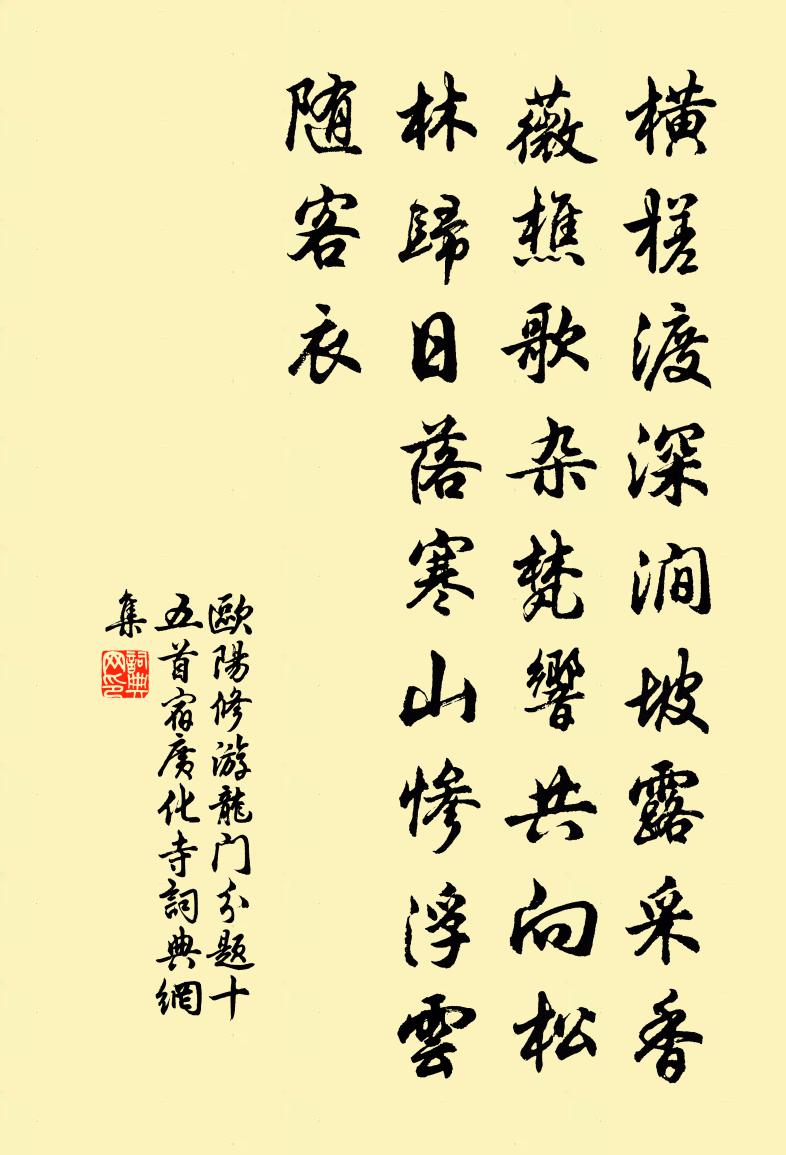 横槎渡深涧坡露采香
薇樵歌杂梵響共向松
林歸日落寒山惨浮雲
随客衣
歐陽修游龍门分题十
五首宿廣化寺詞典網
集
詞典
网印